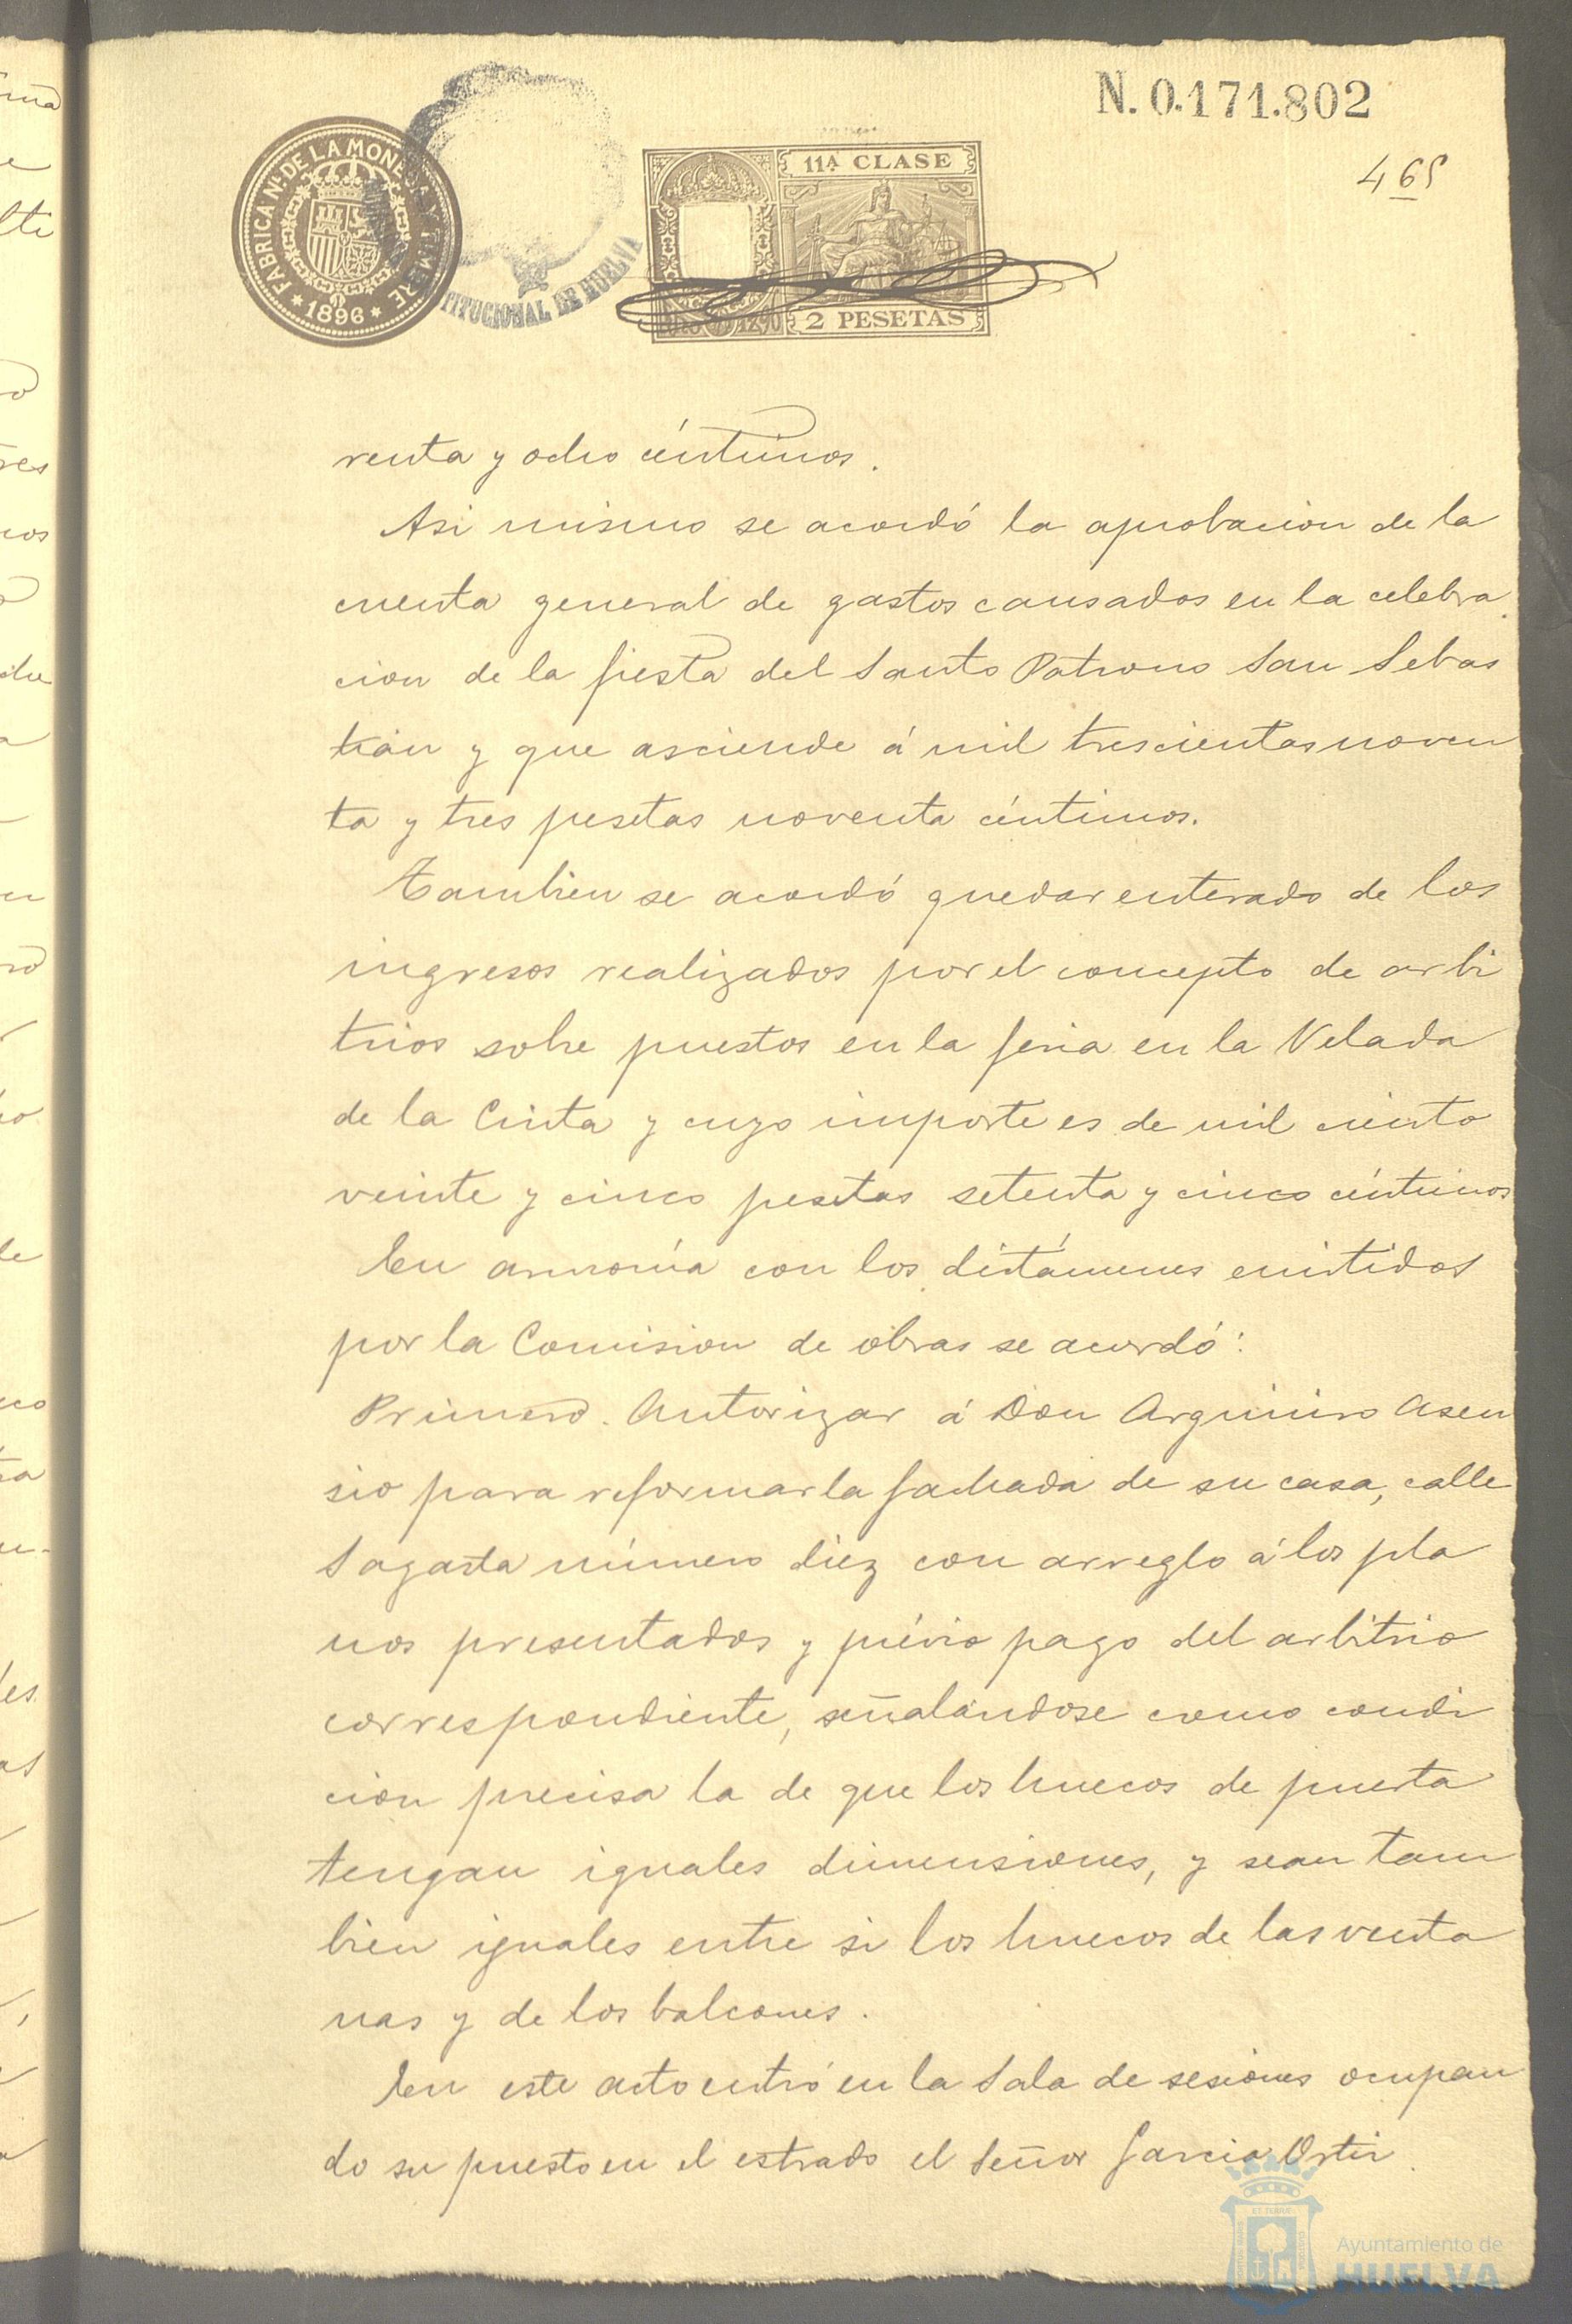 N. 0.171.802
465
FABRICA Nᴸ DE LA MONEDA Y TIMBRE
* 1896 *
TITUCIONAL DE HUELVA
11ᴬ CLASE
2 PESETAS
renta y ocho céntimos.
Asi mismo se acordó la aprobacion de la
cuenta general de gastos causados en la celebra
cion de la fiesta del Santo Patrono San Sebas
tián y que asciende á mil trescientas noven
ta y tres pesetas noventa céntimos.
Tambien se acordó quedar enterado de los
ingresos realizados por el concepto de arbi
trios sobre puestos en la feria en la Velada
de la Cinta y cuyo importe es de mil ciento
veinte y cinco pesetas setenta y cinco céntimos
En armonía con los dictámenes emitidos
por la Comision de obras se acordó:
Primero. Autorizar á Don Argimiro Asen
sio para reformar la fachada de su casa, calle
Sagasta número diez con arreglo á los pla
nos presentados y prévio pago del arbitrio
correspondiente, señalándose como condi
cion precisa la de que los huecos de puerta
tengan iguales dimensiones, y sean tam
bien iguales entre si los huecos de las venta
nas y de los balcones.
En este acto entró en la Sala de sesiones ocupan
do su puesto en el estrado el Señor Garcia Ortiz.
Ayuntamiento de
HUELVA